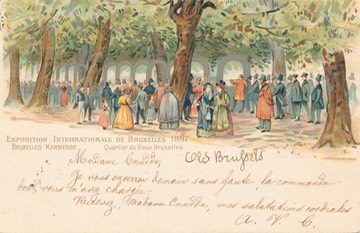 EXPOSITION INTERNATIONALE DE BRUXELLES 1897
BRUXELLES KERMESSE Quartier du Vieux Bruxelles
Old Brussels
Madame
Je vous enverrai demain sans faute la commande
vous m'avez chargée.
Recevez, Madame mes salutations cordiales
A. V. C.